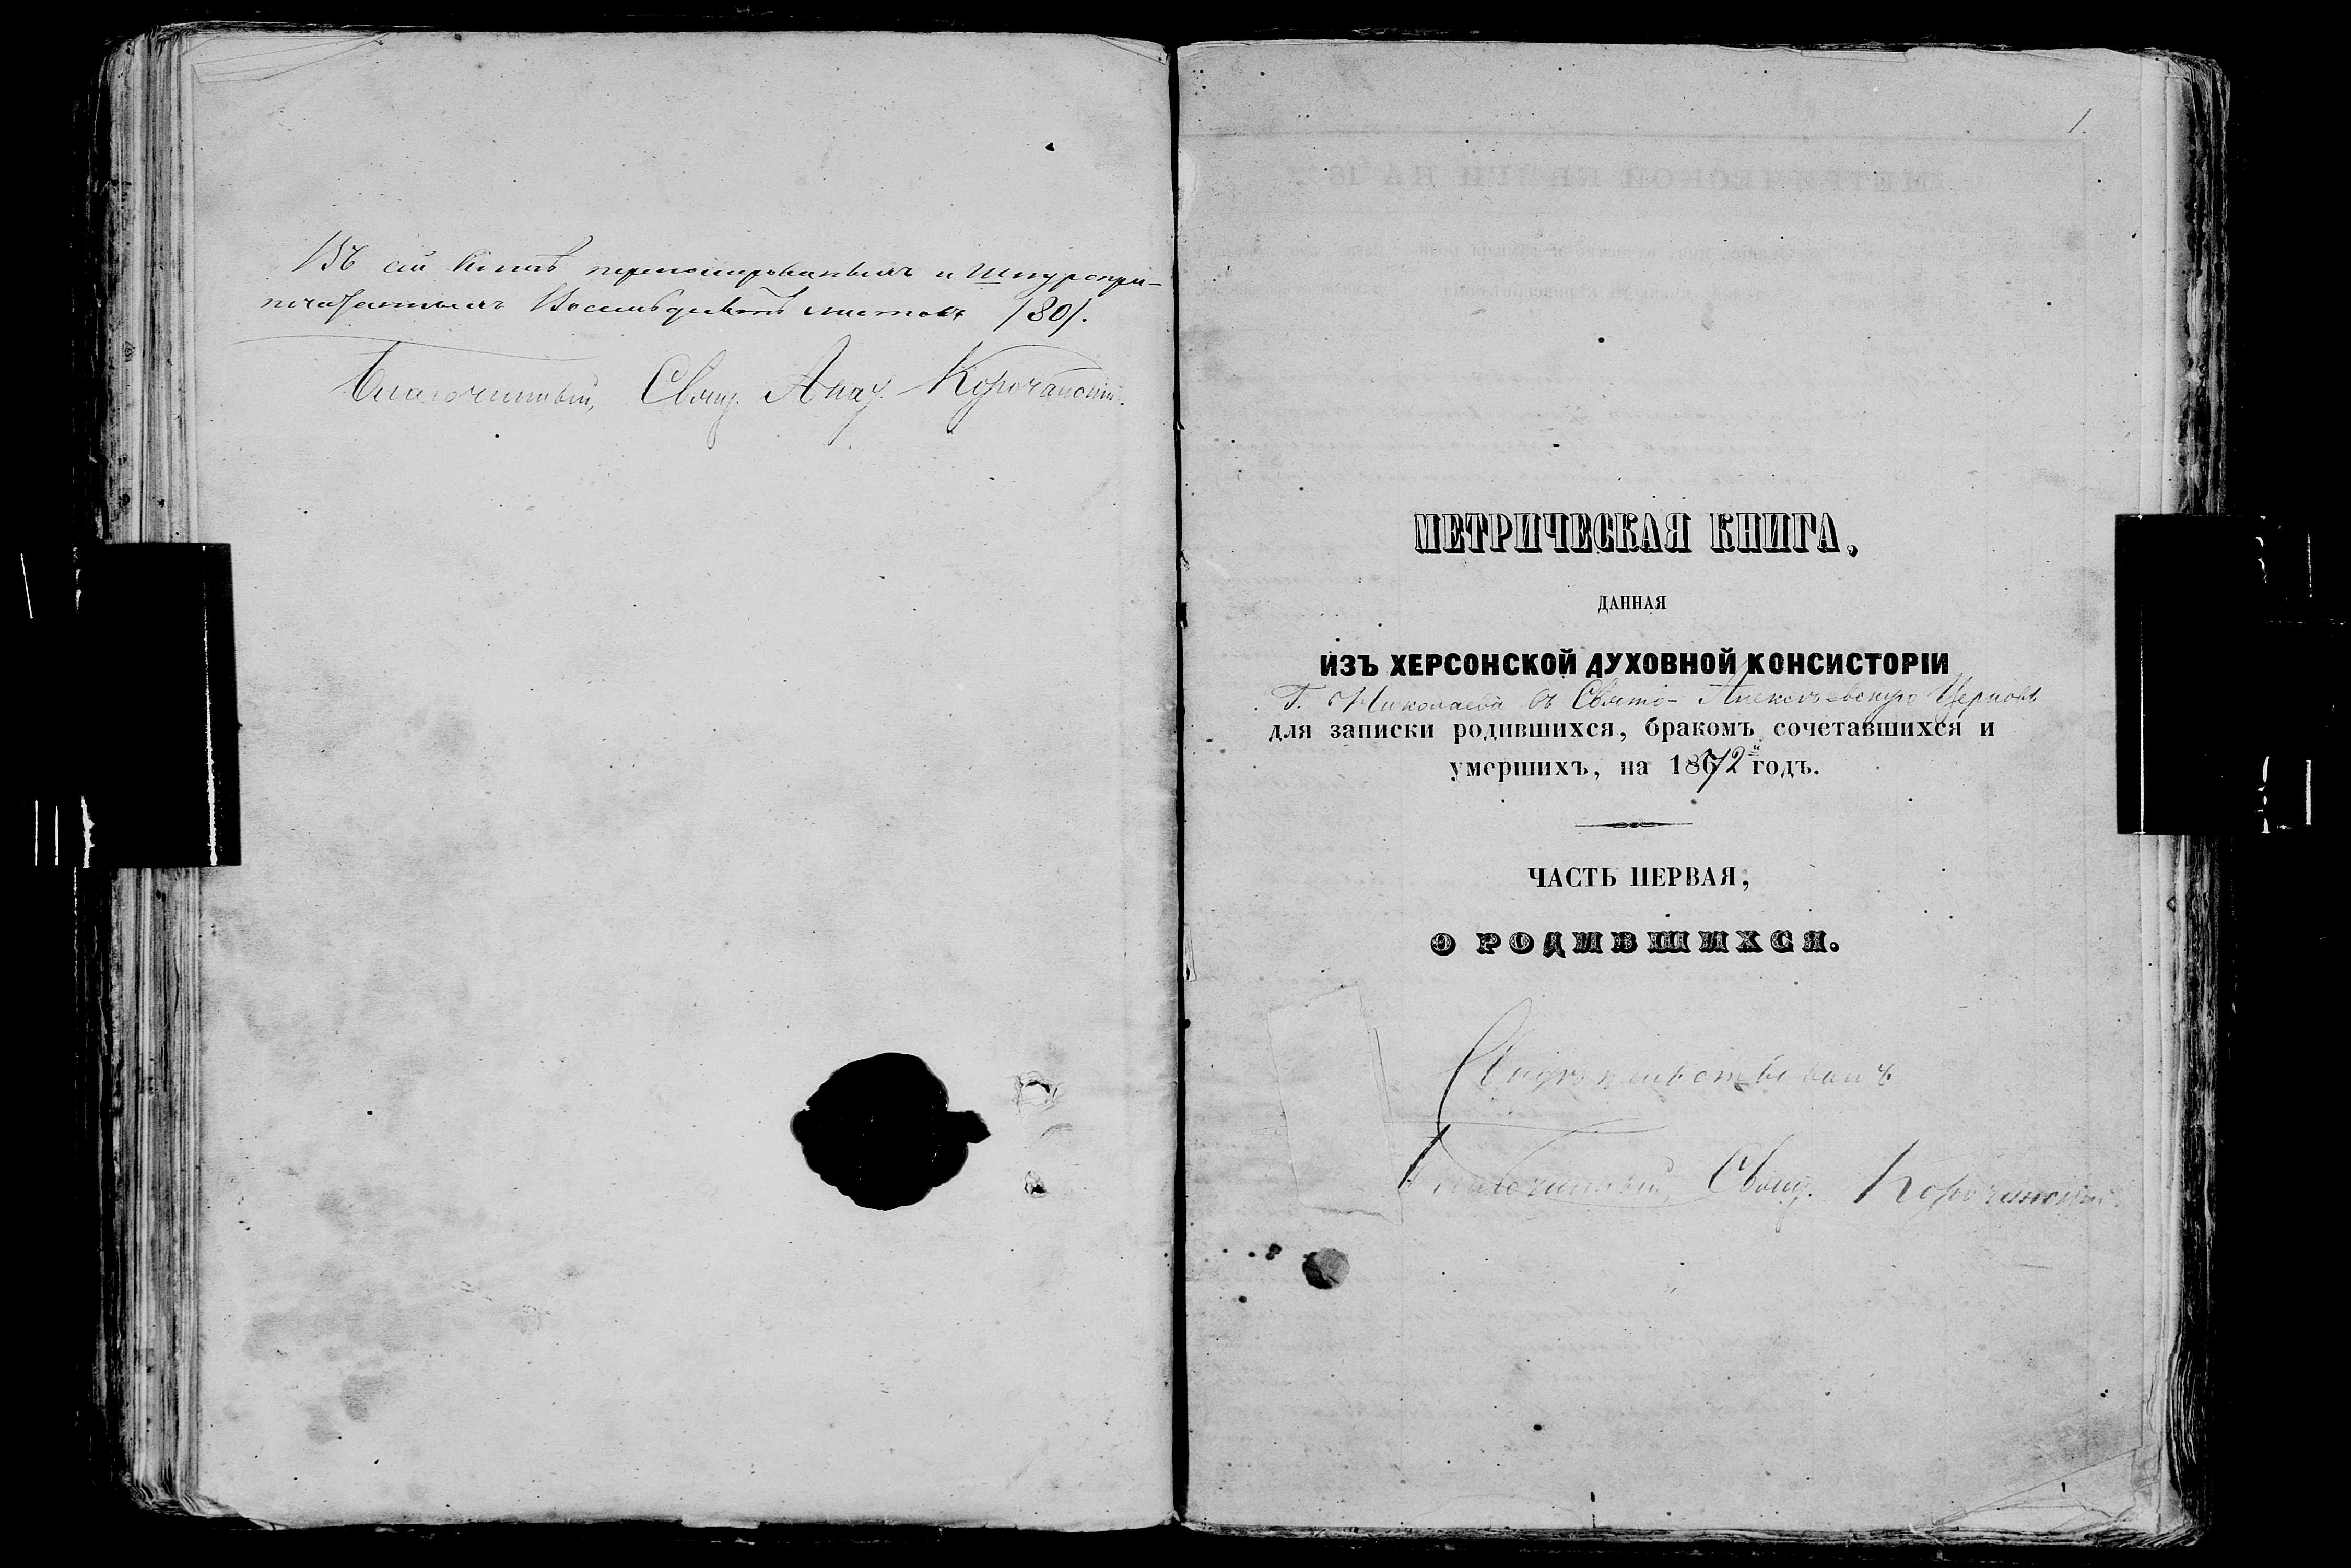 Въ сей книгѣ перенумерованныхъ и шнуропри-
печатанныхъ восемьдесятъ листовъ /80/.
Благочинный, Свящ. Корочанскій.
1.
МЕТРИЧЕСКАЯ КНИГА,
ДАННАЯ
ИЗЪ ХЕРСОНСКОЙ ДУХОВНОЙ КОНСИСТОРІИ
Г. Николаева въ Свято-Алексѣевскую Церковь
для записки родившихся, бракомъ сочетавшихся и
умершихъ, на 1872й годъ.
ЧАСТЬ ПЕРВАЯ,
О РОДИВШИХСЯ.
Свидѣтельствовалъ
Благочинный, Свящ. Корочанскій.